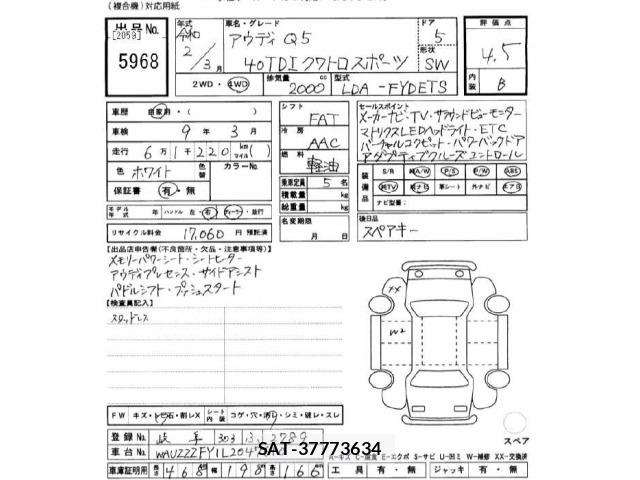 (複合機)対応用紙
出品No.
[2059]
5968
年式
令和
2/3月
車名・グレード
アウディ Q5
40TDIクワトロスポーツ
ドア
5
形状
SW
2WD・4WD
排気量
2000
cc
型式
LDA-FYDETS
評価点
4.5
内装
B
車歴
自家用・( )
車検
9年3月
走行
6万1千220
km
マイル
( )
色
ホワイト
色替
カラーNo.
保証書
有・無
モデル年式
年
ハンドル
左・右
ディーラー・並行
リサイクル料金
17,060円
預託済
シフト
FAT
冷房
AAC
燃料
軽油
乗車定員
5名
積載量
kg
総重量
kg
名変期限
月 日
セールスポイント
メーカーナビ・TV・サラウンドビューモニター
マトリクスLEDヘッドライト・ETC
バーチャルコクピット・パワーバックドア
アダプティブクルーズコントロール
装備品
S/R
純A/W
P/S
P/W
ABS
純TV
純ナビ
革シート
外ナビ
エアB
ナビ型番:
後日品
スペアキー
[出品店申告欄(不良箇所・欠品・注意事項等)]
メモリーパワーシート・シートヒーター
アウディプレセンス・サイドアシスト
パドルシフト・プッシュスタート
[検査員記入]
スタッドレス
XX
W2
スペア
FW
キズ・トビ石・割レX
シート内装
コゲ・穴・汚レ・シミ・縫レ・スレ
登録No.
岐阜 303
2789
車台No.
WAUZZZFY1L204
SAT-37773634
車庫証明用
長さ
468
幅
198
高さ
166
工具
有・無
ジャッキ
有・無